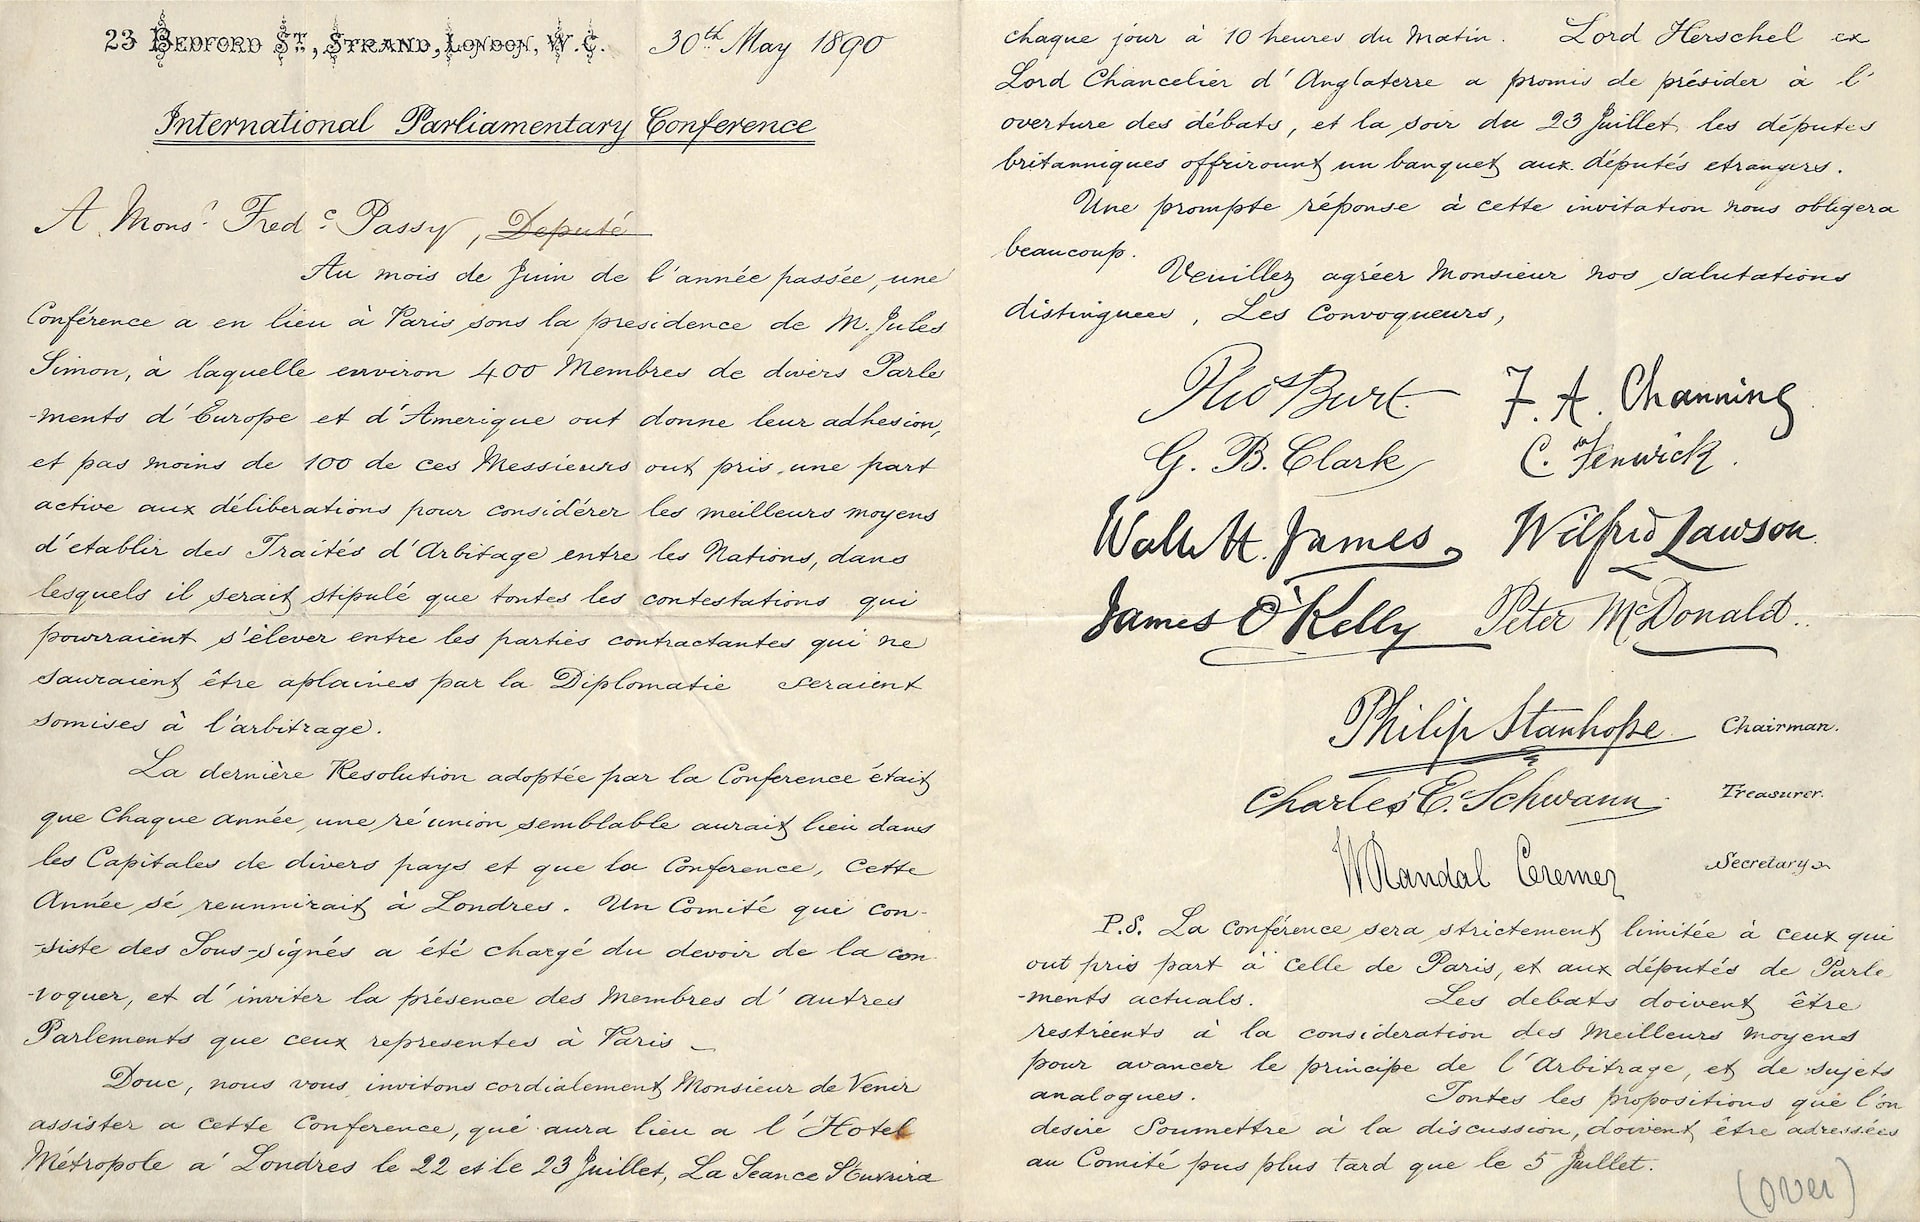 23 Bedford St, Strand, London, W.C. 30th May 1890
International Parliamentary Conference
A Monsr Fredc Passy, Deputé
Au mois de Juin de l'année passée, une
Conférence a en lieu à Paris sons la presidence de M. Jules
Simon, à laquelle environ 400 Membres de divers Parle
-ments d'Europe et d'Amerique out donne leur adhesion,
et pas moins de 100 de ces Messieurs out pris une part
active aux déliberations pour considérer les meilleurs moyens
d'etablir des Traités d'Arbitage entre les Nations, dans
lesquels il serait stipulé que toutes les contestations qui
pourraient s'élever entre les parties contractantes qui ne
sauraient être aplaines par la Diplomatie seraient
somises à l'arbitrage.
La dernière Resolution adoptée par la Conference était
que Chaque année, une réunion semblable aurait lieu dans
les Capitales de divers pays et que la Conference, Cette
Année sé reunnirait à Londres. Un Comité qui con-
-siste des Sous-signés a été chargé du devoir de la con
-voquer, et d'inviter la présence des Membres d'autres
Parlements que ceux representes à Paris –
Douc, nous vous invitons cordialement Monsieur de Venir
assister a cette Conference, qui aura lieu a l'Hotel
Métropole a' Londres le 22 et le 23 Juillet, La Seance S'Ouvrira
chaque jour à 10 heures du Matin. Lord Herschel ex
Lord Chancelier d'Anglaterre a promis de présider à l'
overture des débats, et la soir du 23 Juillet les députes
britanniques offrirount un banquet aux députés etrangers.
Une prompte réponse à cette invitation nous obligera
beaucoup.
Veuillez agréer Monsieur nos salutations
distinguees, Les Convoqueurs,
Thos Burt. F. A. Channing
G. B. Clark C. Fenwick.
Walter H. James Wilfrid Lawson
James O'Kelly Peter McDonald.
Philip Stanhope Chairman.
Charles E. Schwann Treasurer.
W Randal Cremer Secretary
P.S. La Conférence sera strictement limitée à ceux qui
out pris part à celle de Paris, et aux députés de Parle
-ments actuals. Les debats doivent être
restréents à la consideration des Meilleurs moyens
pour avancer le principe de l'Arbitrage, et de sujets
analogues. Toutes les propositions que l'on
desire Soumettre à la discussion, doivent être adressées
au Comité pus plus tard que le 5 Juillet.
(over)